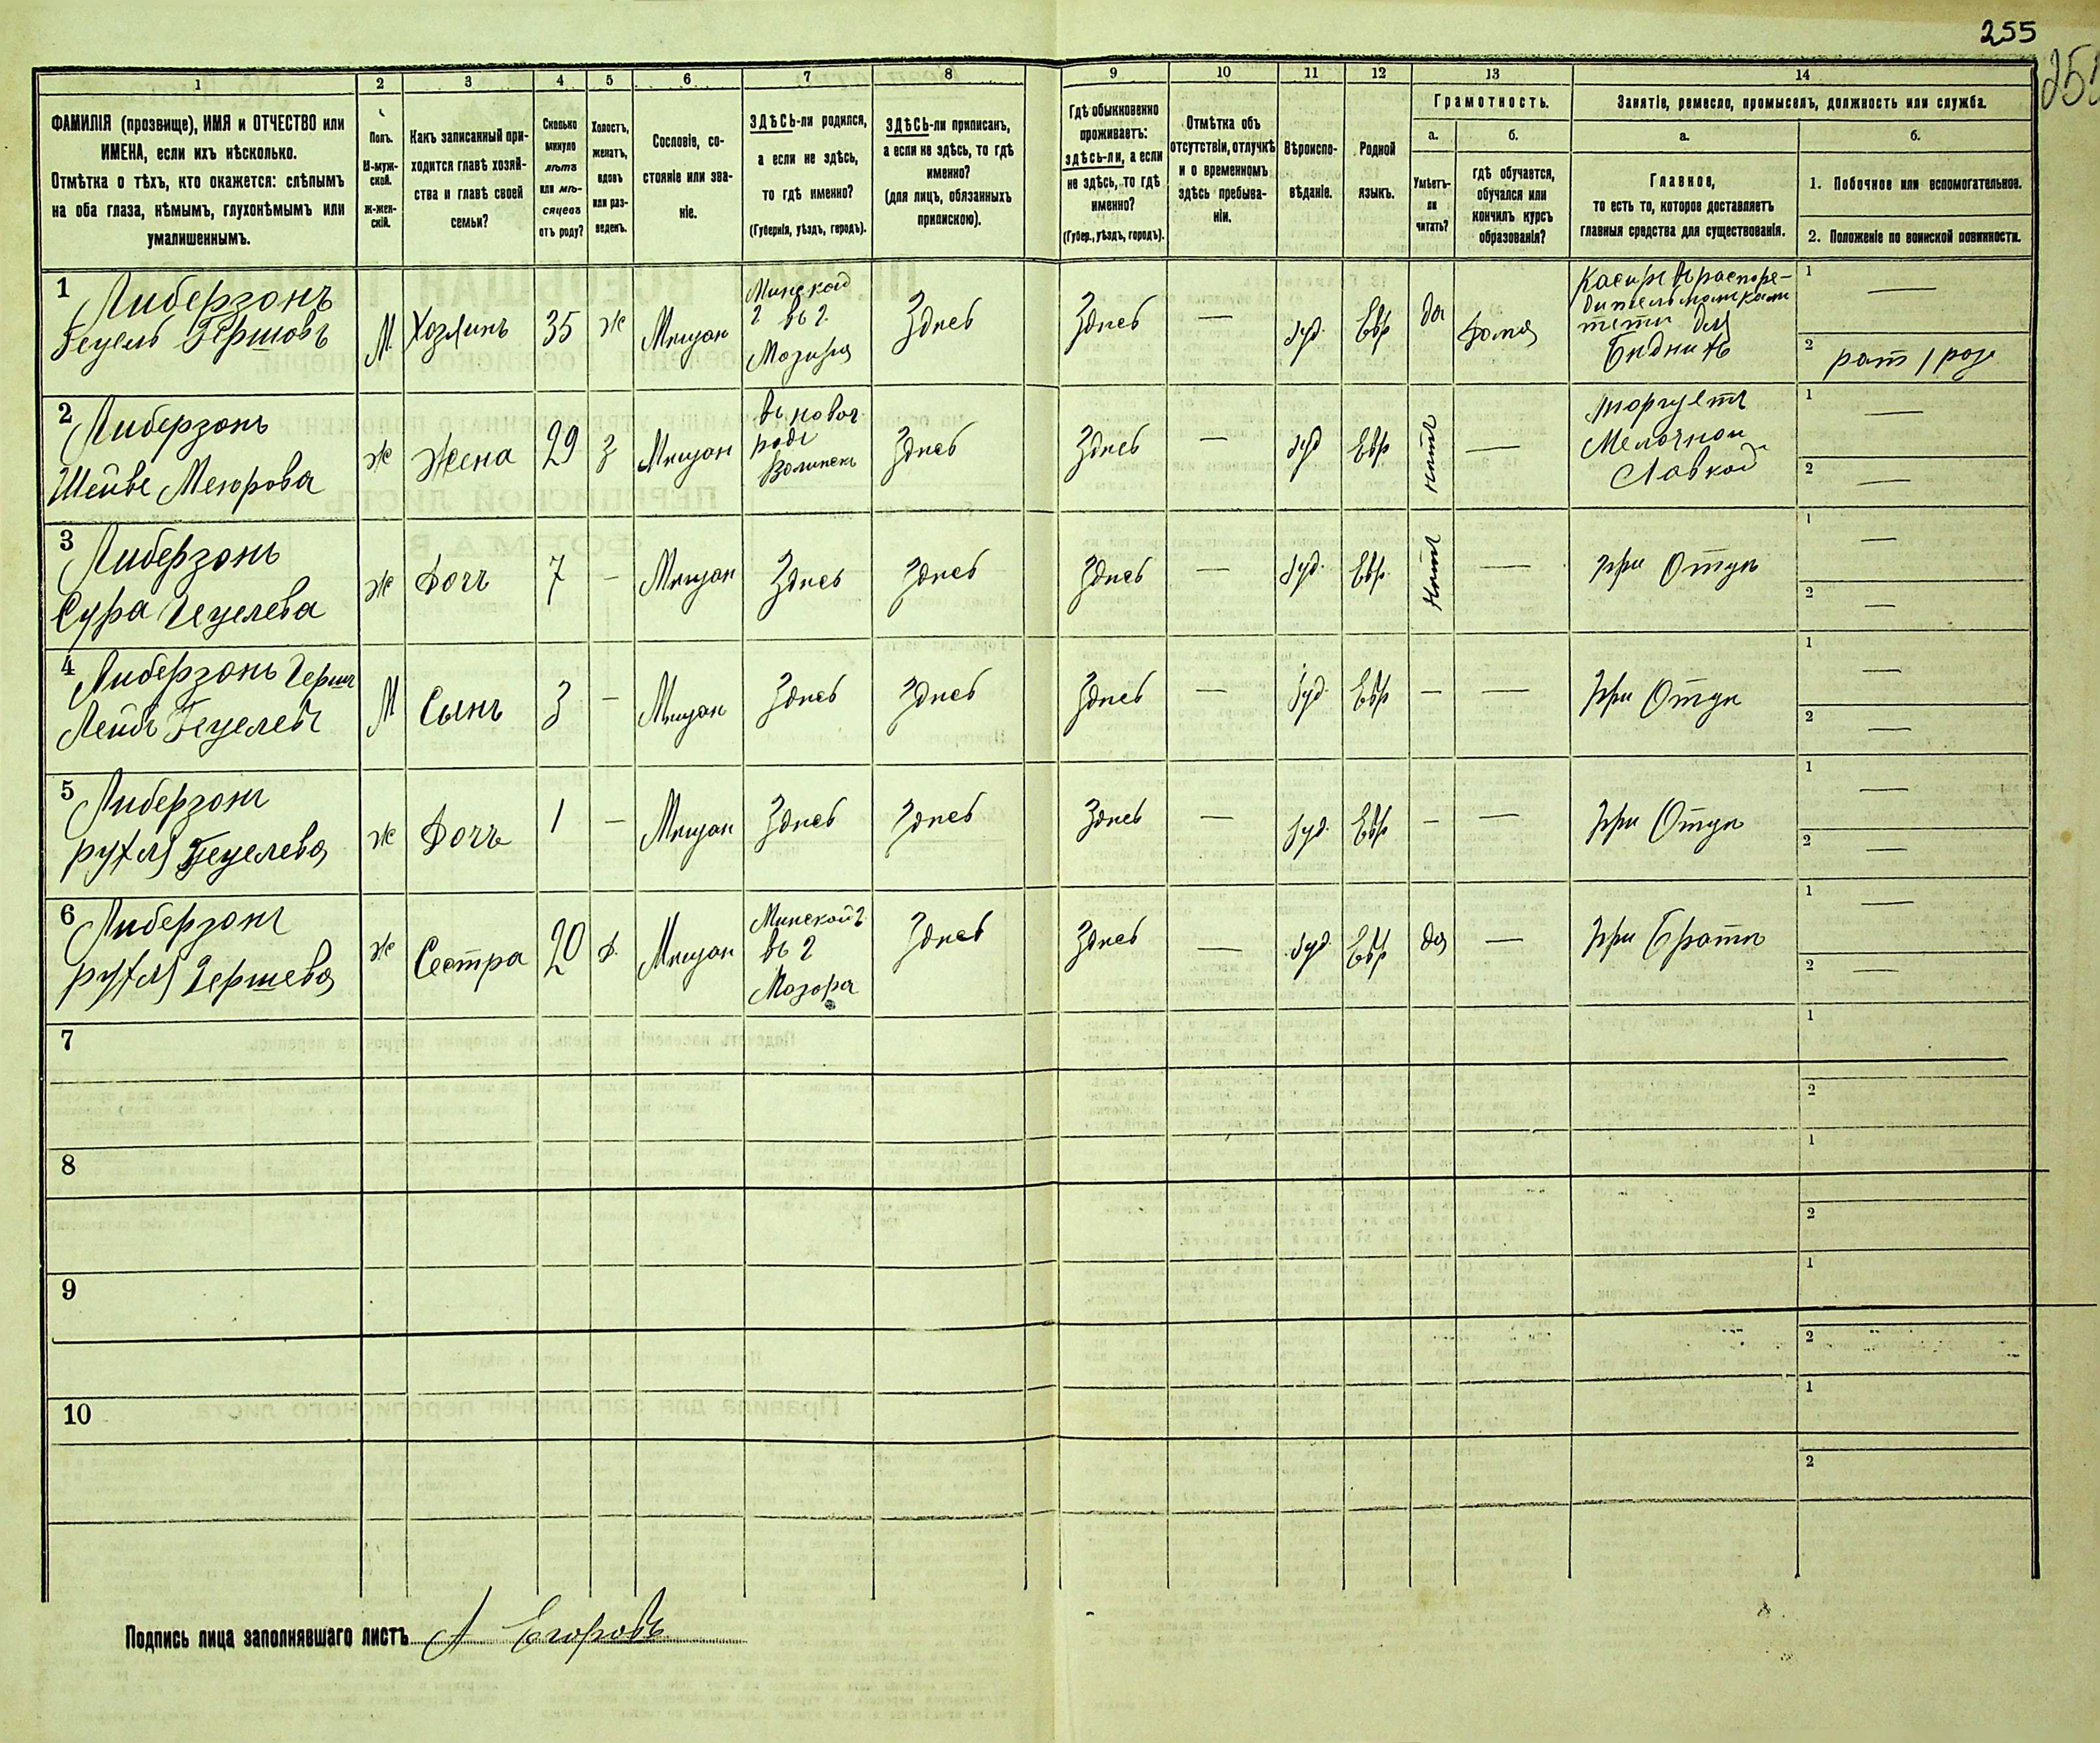 255
1
2
3
4
5
6
7
8
9
10
11
12
13
14
ФАМИЛІЯ (прозвище), ИМЯ и ОТЧЕСТВО или
ИМЕНА, если ихъ нѣсколько.
Отмѣтка о тѣхъ, кто окажется: слѣпымъ
на оба глаза, нѣмымъ, глухонѣмымъ или
умалишеннымъ.
Полъ.
М-муж-
ской.
Ж-жен-
скій.
Какъ записанный при-
ходится главѣ хозяй-
ства и главѣ своей
семьи?
Сколько
минуло
лѣтъ
или мѣ-
сяцевъ
отъ роду?
Холостъ,
женатъ,
вдовъ
или раз-
веденъ.
Сословіе, со-
стояніе или зва-
ніе.
ЗДѢСЬ-ли родился,
а если не здѣсь,
то гдѣ именно?
(Губернія, уѣздъ, городъ).
ЗДѢСЬ-ли приписанъ,
а если не здѣсь, то гдѣ
именно?
(для лицъ, обязанныхъ
припискою).
Гдѣ обыкновенно
проживаетъ:
здѣсь-ли, а если
не здѣсь, то гдѣ
именно?
(Губер., уѣздъ, городъ).
Отмѣтка объ
отсутствіи, отлучкѣ
и о временномъ
здѣсь пребыва-
ніи.
Вѣроиспо-
вѣданіе.
Родной
языкъ.
Грамотность.
а.
Умѣетъ-
ли
читать?
б.
гдѣ обучается,
обучался или
кончилъ курсъ
образованія?
Занятіе, ремесло, промыселъ, должность или служба.
а.
Главное,
то есть то, которое доставляетъ
главныя средства для существованія.
б.
1. Побочное или вспомогательное.
2. Положеніе по воинской повинности.
1
Либерзонъ
Гецель Гершовъ
М
Хозяинъ
35
ж
Мѣщан
Минской
г въ г.
Мозыря
Здѣсь
Здѣсь
—
Іуд.
Евр
да
дома
Касиръ
для
1
—
2
рат 1 раз
2
Либерзонъ
Шейве Меерова
ж
Жена
29
З
Мѣщан
Здѣсь
Здѣсь
—
Іуд
Евр
нѣтъ
—
торгуетъ
Мелочной
Лавкой
1
—
2
—
3
Либерзонъ
Сура Гецелева
ж
Дочь
7
—
Мѣщан
Здѣсь
Здѣсь
Здѣсь
—
Іуд.
Евр.
Нѣтъ
—
при Отцѣ
1
—
2
—
4
Либерзонъ Герш
Лейбъ Гецелевъ
М
Сынъ
3
—
Мѣщан
Здѣсь
Здѣсь
Здѣсь
—
Іуд.
Евр
—
—
при Отцѣ
1
—
2
—
5
Либерзонъ
рухля Гецелева
ж
Дочь
1
—
Мѣщан
Здѣсь
Здѣсь
Здѣсь
—
Іуд.
Евр
—
—
при Отцѣ
1
—
2
—
6
Либерзонъ
рухля Гершева
ж
Сестра
20
д.
Мѣщан
Минской г.
въ г
Мозыря
Здѣсь
Здѣсь
—
Іуд
Евр
да
—
при Братѣ
1
—
2
—
7
1
2
8
1
2
9
1
2
10
1
2
Подпись лица заполнявшаго листъ А Егоровъ